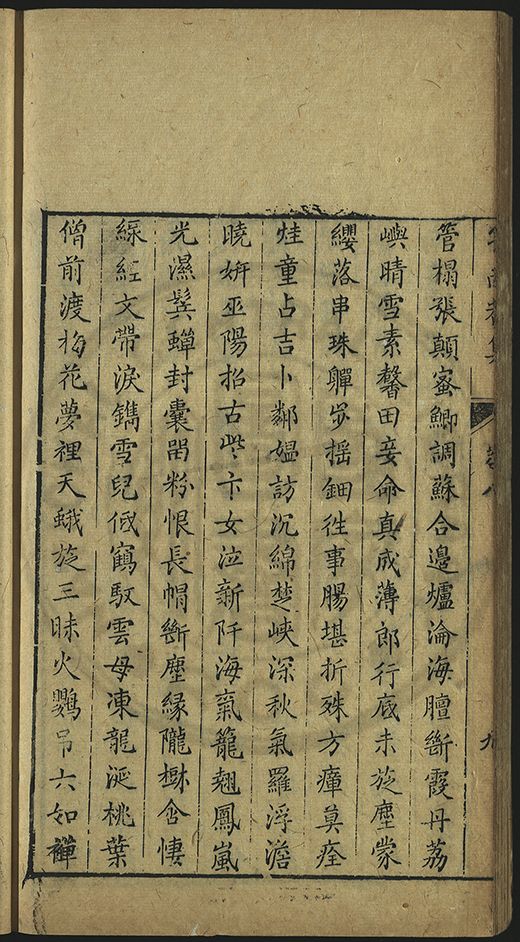 管榻張顛蜜鯽調蘇合邊爐淪海膻斷霞丹荔
嶼晴雪素馨田妾命真成薄郎行底未旋塵蒙
纓落串珠軃步搖鈿往事腸堪折殊方瘴莫痊
炷童占吉卜鄰媼訪沉綿楚峽深秋氣羅浮澹
曉妍巫陽招古些卞女泣新阡海氣籠翹鳳嵐
光濕鬂蟬封囊留粉恨長帽斷塵緣隴樹含悽
文帶淚鐫雪兒低鶴馭雲母凍龍涎桃葉
僧前渡梅花夢裡天蛾旋三昧火鸚弔六如禪